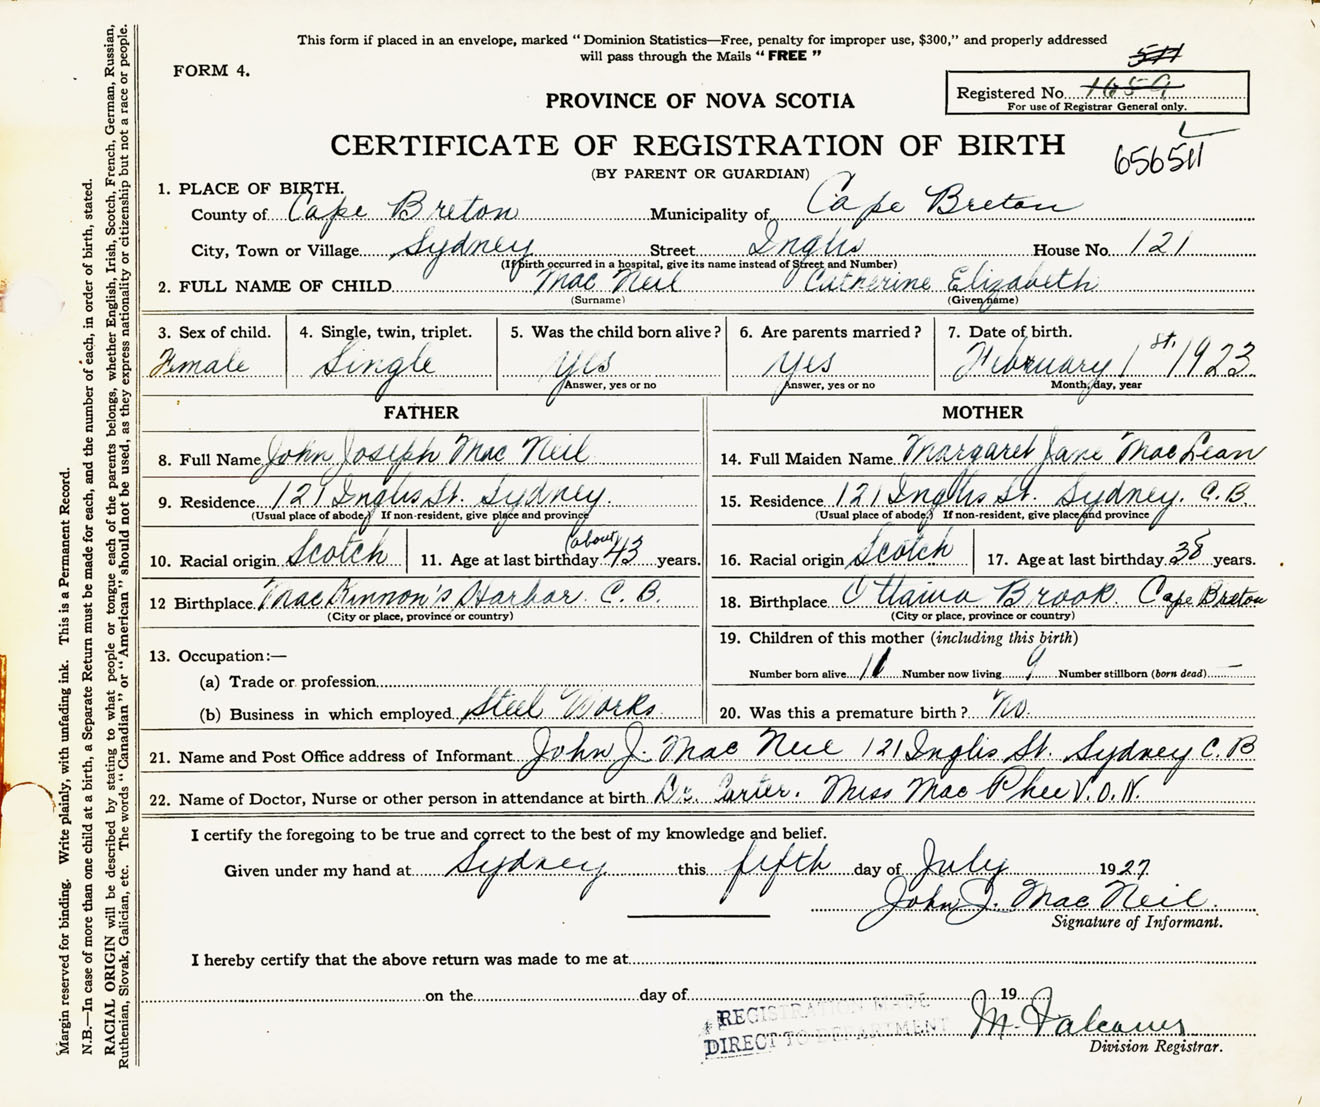 This form if placed in an envelope, marked "Dominion Statistics—Free, penalty for improper use, $300," and properly addressed
will pass through the Mails "FREE"
FORM 4.
511
Registered No. 1659
For use of Registrar General only.
PROVINCE OF NOVA SCOTIA
CERTIFICATE OF REGISTRATION OF BIRTH
(BY PARENT OR GUARDIAN)
656511
1. PLACE OF BIRTH.
County of Cape Breton Municipality of Cape Breton
City, Town or Village Sydney Street Inglis House No. 121
(If birth occurred in a hospital, give its name instead of Street and Number)
2. FULL NAME OF CHILD Mac Neil Catherine Elizabeth
(Surname) (Given name)
3. Sex of child. 4. Single, twin, triplet. 5. Was the child born alive? 6. Are parents married? 7. Date of birth.
Female Single yes yes February 1st. 1923
Answer, yes or no Answer, yes or no Month, day, year
FATHER MOTHER
8. Full Name John Joseph Mac Neil 14. Full Maiden Name Margaret Jane MacLean
9. Residence 121 Inglis St. Sydney. 15. Residence 121 Inglis St. Sydney. C.B.
(Usual place of abode.) If non-resident, give place and province (Usual place of abode.) If non-resident, give place and province
10. Racial origin Scotch 11. Age at last birthday (about) 43 years. 16. Racial origin Scotch 17. Age at last birthday 38 years.
12 Birthplace MacKinnon's Harbor. C.B. 18. Birthplace Ottawa Brook. Cape Breton
(City or place, province or country) (City or place, province or country)
19. Children of this mother (including this birth)
13. Occupation:—
Number born alive 11 Number now living 9 Number stillborn (born dead) —
(a) Trade or profession
(b) Business in which employed Steel Works 20. Was this a premature birth? No.
21. Name and Post Office address of Informant John J. Mac Neil 121 Inglis St. Sydney C.B
22. Name of Doctor, Nurse or other person in attendance at birth Dr. Carter. Miss Mac Phee V.O.N.
I certify the foregoing to be true and correct to the best of my knowledge and belief.
Given under my hand at Sydney this fifth day of July 1927
John J. Mac Neil.
Signature of Informant.
I hereby certify that the above return was made to me at
on the day of 19
REGISTRATION MADE
DIRECT TO DEPARTMENT
M. Falconer
Division Registrar.
Margin reserved for binding. Write plainly, with unfading ink. This is a Permanent Record.
N.B.—In case of more than one child at a birth, a Separate Return must be made for each, and the number of each, in order of birth, stated.
RACIAL ORIGIN will be described by stating to what people or tongue each of the parents belongs, whether English, Irish, Scotch, French, German, Russian,
Ruthenian, Slovak, Galician, etc. The words "Canadian" or "American" should not be used, as they express nationality or citizenship but not a race or people.